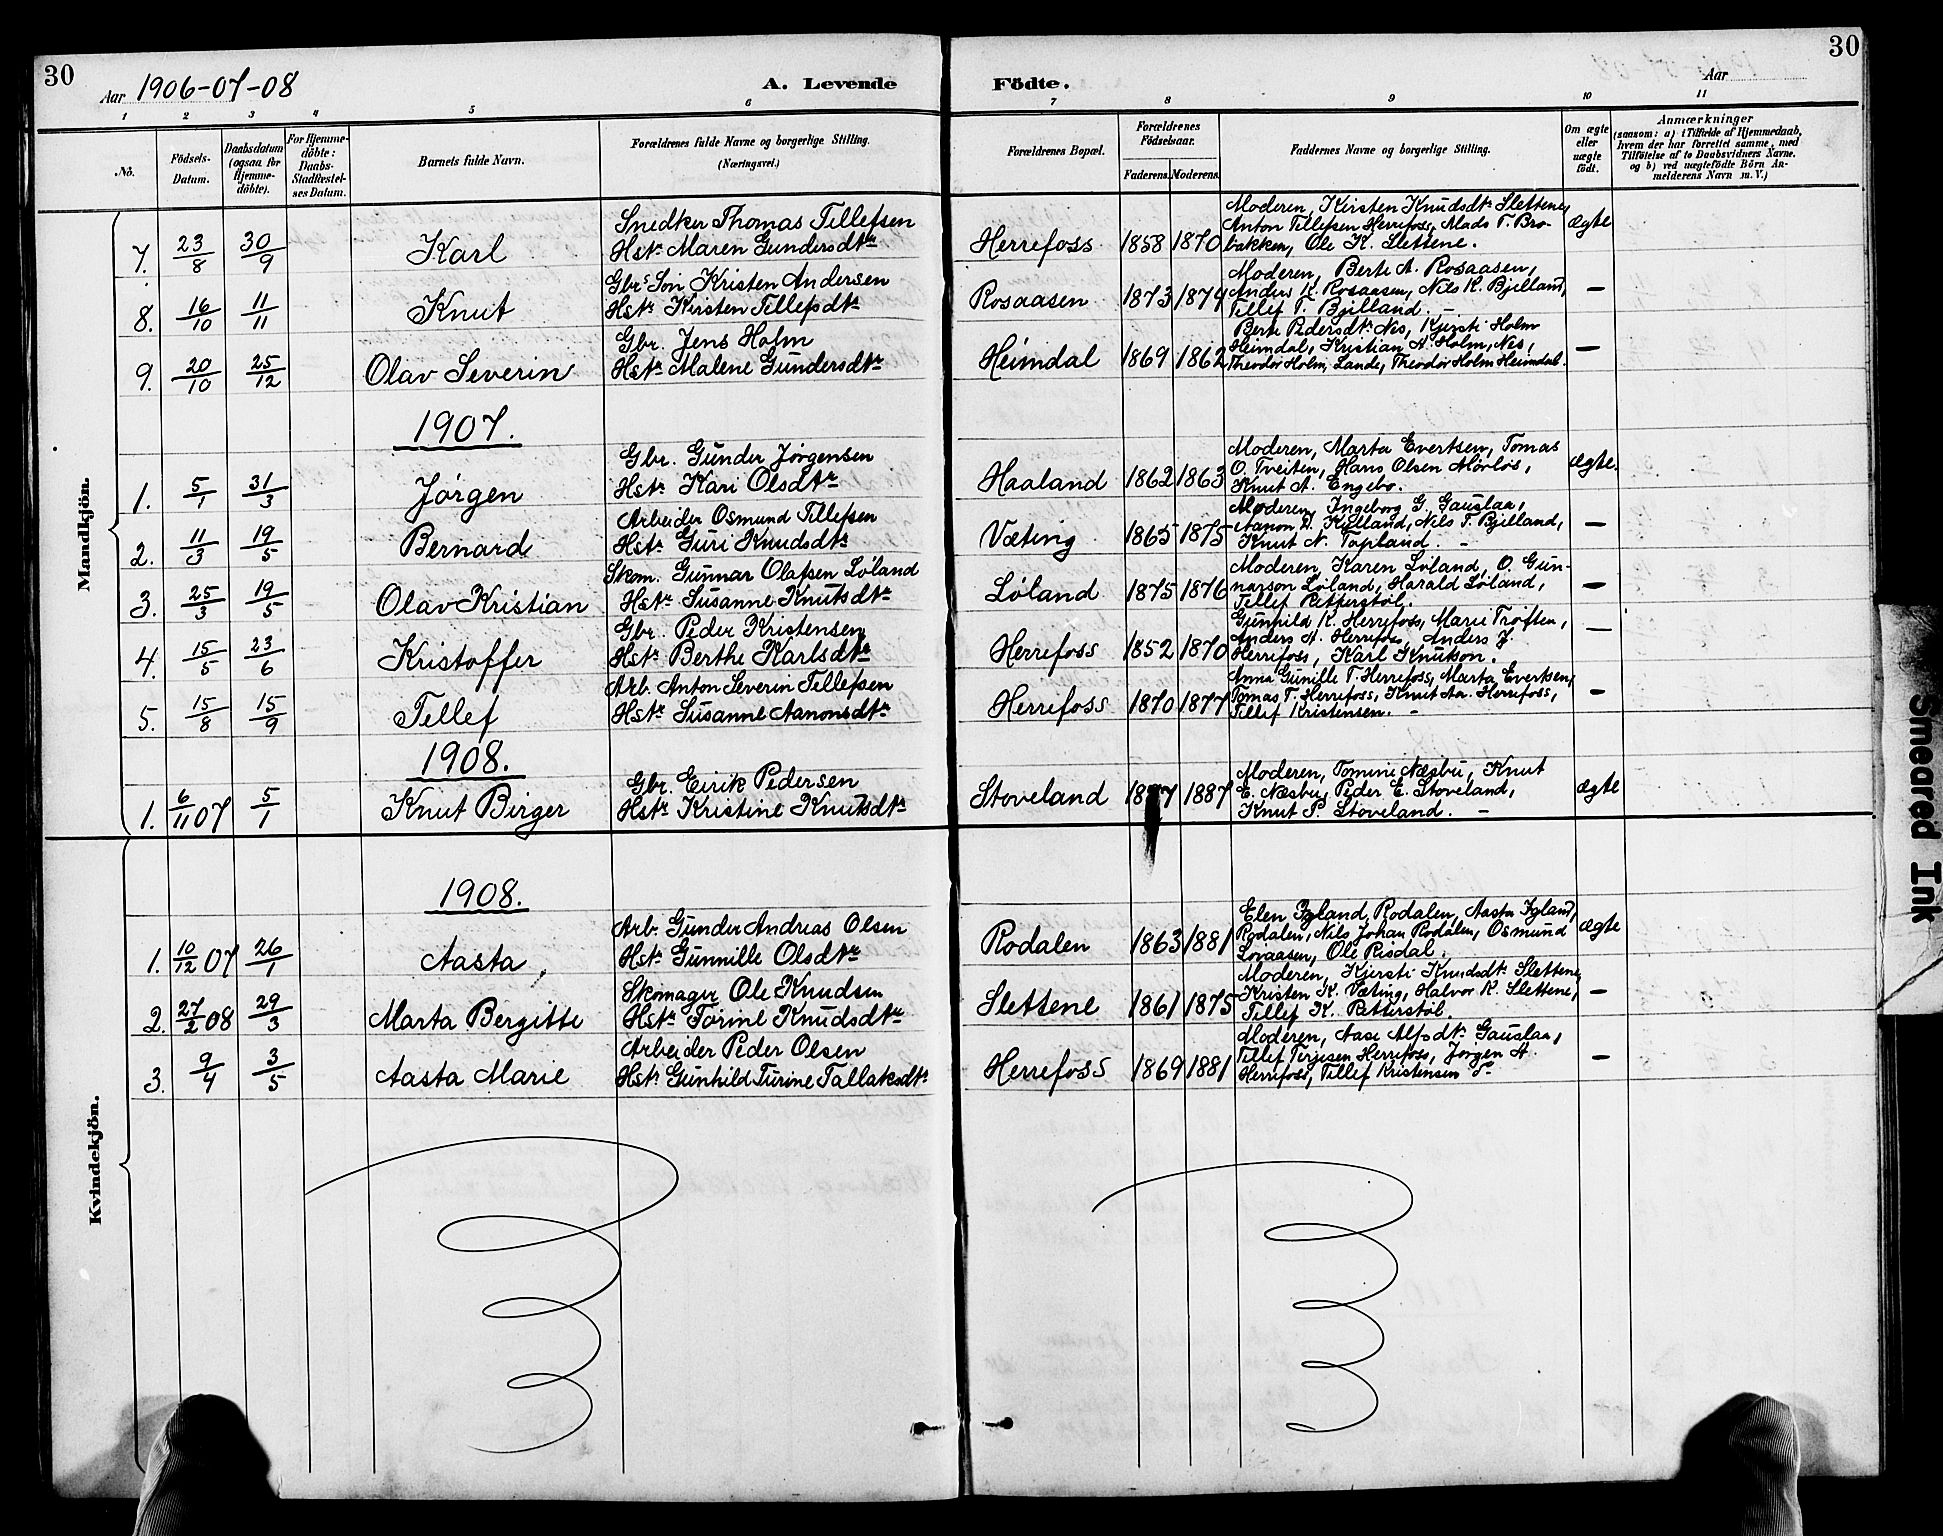 30
Aar 1906-07-08
A. Levende Födte.
Aar
30
1 2 3 4 5 6 7 8 9 10 11
No.
Födsels-Datum.
Daabsdatum (ogsaa for Hjemme-döbte).
For Hjemme-döbte: Daabs-Stadfæstel-ses Datum.
Barnets fulde Navn.
Forældrenes fulde Navne og borgerlige Stilling. (Næringsvei.)
Forældrenes Bopæl.
Forældrenes Födselsaar.
Faderens. Moderens.
Faddernes Navne og borgerlige Stilling.
Om ægte eller uægte födt.
Anmærkninger
(saasom: a) i Tilfælde af Hjemmedaab, hvem der har forrettet samme, med Tilföielse af to Daabsvidners Navne, og b) ved uægtefödte Börn An-melderens Navn m. V.)
Mandkjön.
7. 23/8 30/9 Karl
Snedker Thomas Tillefsen
Hstr Maren Gundersdtr
Herrefoss 1858 1870
Moderen, Kirsten Knudsdtr Slettene,
Anton Tillefsen Herrefoss, Mads T. Bro-
bakken, Ole K. Slettene.
ægte
8. 16/10 11/11 Knut
Gbr Søn Kristen Andersen
Hstr Kirsten Tillefsdtr
Rosaasen 1873 1874
Moderen, Berte A. Rosaasen,
Anders K. Rosaasen, Nils K. Bjelland,
Tillef T. Bjelland. –
–
9. 20/10 25/12 Olav Severin
Gbr. Jens Holm
Hstr Malene Gundersdtr
Heimdal 1869 1862
Berte Pedersdtr Nes, Kjersti Holm
Heimdal, Kristian H. Holm, Nes,
Theodor Holm, Lande, Theodor Holm Heimdal.
–
1907.
1. 5/1 31/3 Jørgen
Gbr. Gunder Jørgensen
Hstr Kari Olsdtr
Haaland 1862 1863
Moderen, Marta Evertsen, Tomas
O. Tveiten, Hans Olsen Mørløs,
Knut A. Engebo.
ægte.
2. 11/3 19/5 Bernard
Arbeider Osmund Tillefsen
Hstr Guri Knudsdtr
Væting 1865 1875
Moderen, Ingeborg G. Gauslaa,
Aanon Kjelland, Nils T. Bjelland,
Knut N. Topland. –
–
3. 25/3 19/5 Olav Kristian
Skom. Gunnar Olafsen Løland
Hstr Susanne Knutsdtr
Løland 1875 1876
Moderen, Karen Løland, O. Gun-
narson Løland, Harald Løland,
Tillef Retterstøl.
–
4. 15/5 23/6 Kristoffer
Gbr. Peder Kristensen
Hstr Berthe Karlsdtr
Herrefoss 1852 1870
Gunhild K. Herrefoss, Marie Trøften,
Anders A. Herrefoss, Anders J.
Herrefoss, Karl Knutson.
–
5. 15/8 15/9 Tellef
Arb. Anton Severin Tillefsen
Hstr Susanne Aanonsdtr
Herrefoss 1870 1877
Anna Gunille T. Herrefoss, Marta Evertsen,
Tomas T. Herrefoss, Knut Aa. Herrefoss,
Tillef Kristensen. –
–
1908.
1. 6/11 07 5/1 Knut Birger
Gbr. Eirik Pedersen
Hstr Kristine Knutsdtr
Stoveland 1887
Moderen, Tomine Næsbu, Knut
E. Næsbu, Peder E. Stoveland,
Knut P. Stoveland. –
ægte
Kvindekjön.
1908.
1. 10/12 07 26/1 Aasta
Arb. Gunder Andreas Olsen
Hstr Gunnille Olsdtr
Rodalen 1863 1881
Elen Igland, Rodalen, Aasta Igland,
Rodalen, Nils Johan Rodalen, Osmund
Løvaasen, Ole Risdal.
ægte
2. 27/2 08 29/3 Marta Bergitte
Skomager Ole Knudsen
Hstr Torine Knudsdtr
Slettene 1861 1875
Moderen, Kjersti Knudsdtr Slettene,
Kristen K. Væting, Halvor K. Slettene,
Tillef K. Retterstøl.
–
3. 9/4 3/5 Aasta Marie
Arbeider Peder Olsen
Hstr Gunhild Turine Tallaksdtr
Herrefoss 1869 1881
Moderen, Aase Alfsdtr Gauslaa,
Tillef Terjesen Herrefoss, Jørgen A.
Herrefoss, Tillef Kristensen
–
Smeared Ink